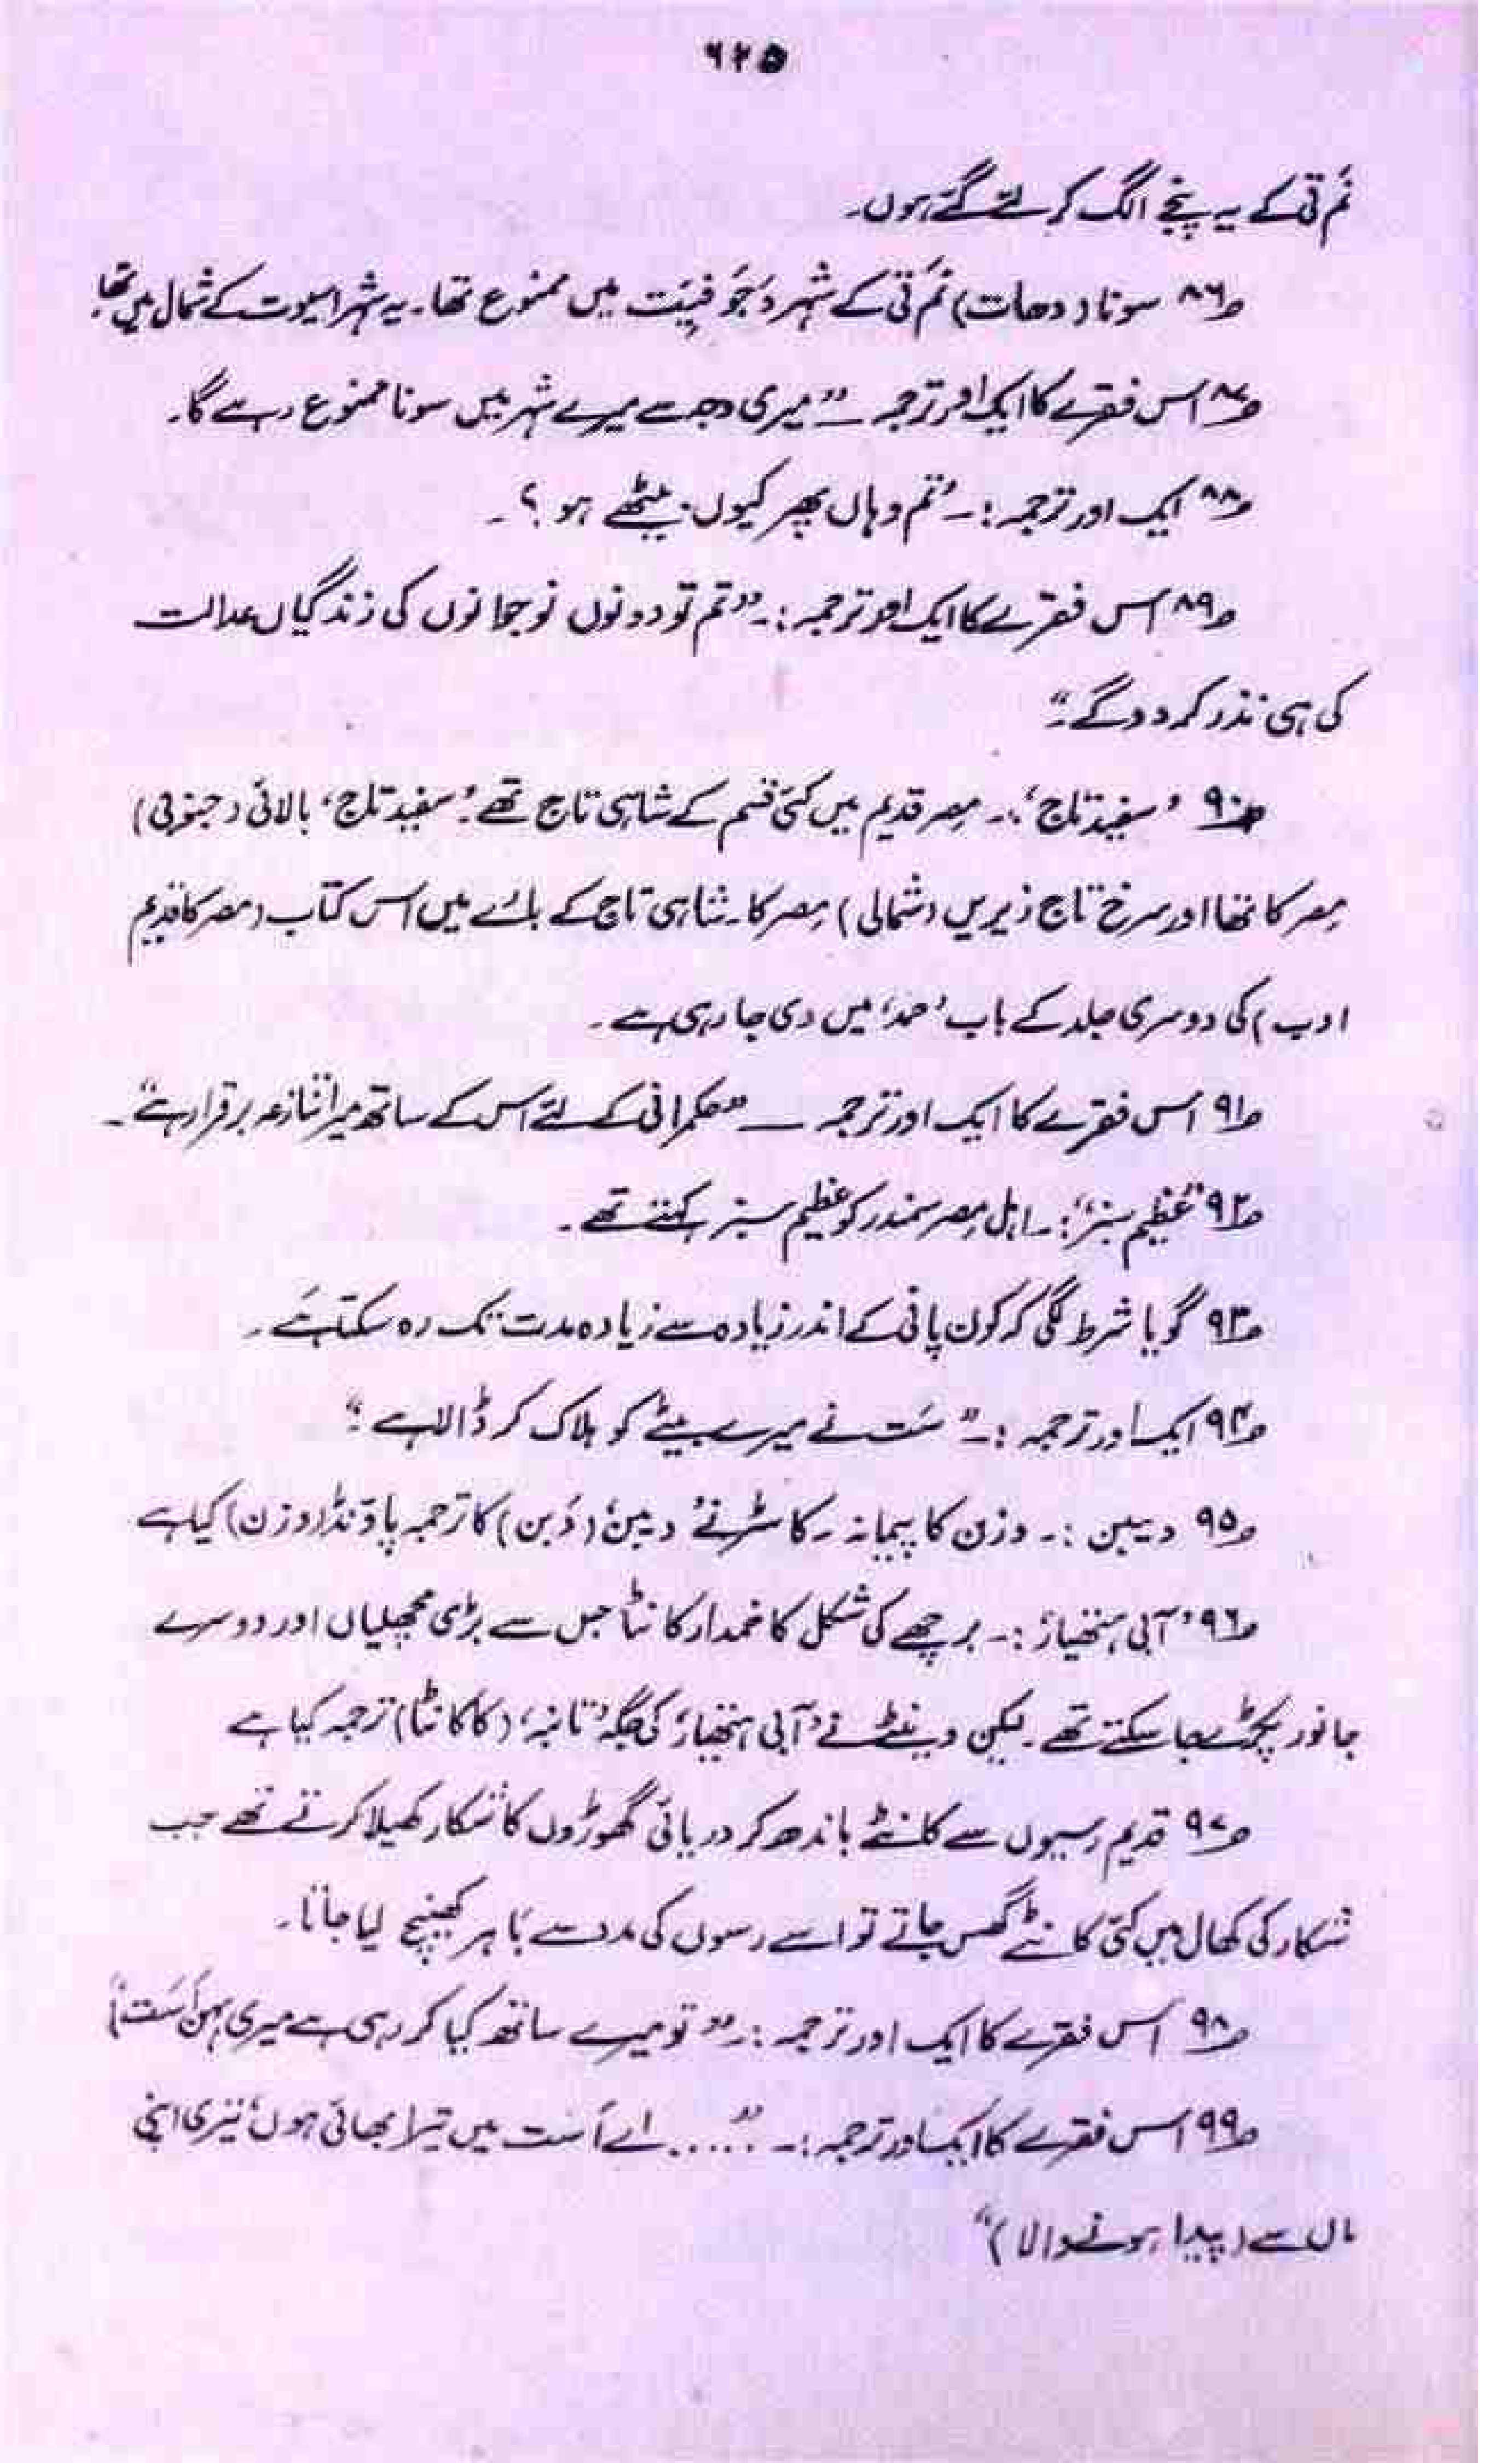 ۶۲۵
نَم تی کے یہ پنجے الگ کر لئے گئے ہوں۔
۸۶ سونا (دھات) نَم تی کے شہر دَجَو فیَت میں ممنوع تھا۔ یہ شہر اسیوت کے شمال میں تھا۔
۸۷ اس فقرے کا ایک اور ترجمہ ــ "میری وجہ سے میرے شہر میں سونا ممنوع رہے گا۔
۸۸ ایک اور ترجمہ :۔ 'تم وہاں پھر کیوں بیٹھے ہو ؟ ۔
۸۹ اس فقرے کا ایک اور ترجمہ :۔ "تم تو دونوں نوجوانوں کی زندگیاں عدالت
کی ہی نذر کر دو گے۔"
۹۰ 'سفید تاج' :۔ مصر قدیم میں کئی قسم کے شاہی تاج تھے۔ 'سفید تاج' بالائی (جنوبی)
مصر کا تھا اور سرخ تاج زیریں (شمالی) مصر کا۔ شاہی تاج کے بارے میں اس کتاب (مصر کا قدیم
ادب) کی دوسری جلد کے باب 'حمد' میں دی جا رہی ہے۔
۹۱ اس فقرے کا ایک اور ترجمہ ــ "حکمرانی کے لئے اس کے ساتھ میرا تنازعہ برقرار ہے"۔
۹۲ "عظیم سبز" :۔ اہل مصر سمندر کو عظیم سبز کہتے تھے۔
۹۳ گویا شرط لگی کہ کون پانی کے اندر زیادہ سے زیادہ مدت تک رہ سکتا ہے۔
۹۴ ایک اور ترجمہ :۔ "سَت نے میرے بیٹے کو ہلاک کر ڈالا ہے۔"
۹۵ دیبن :۔ وزن کا پیمانہ۔ کاسٹر نے 'دیبن' (دَبن) کا ترجمہ پاؤنڈ (وزن) کیا ہے
۹۶ 'آبی ہتھیار' :۔ برچھے کی شکل کا خمدار کانٹا جس سے بڑی مچھلیاں اور دوسرے
جانور پکڑے جا سکتے تھے۔ لیکن وینٹے نے 'آبی ہتھیار' کی جگہ 'تانبہ' (کا کانٹا) ترجمہ کیا ہے
۹۷ قدیم رسیوں سے کانٹے باندھ کر دریائی گھوڑوں کا شکار کھیلا کرتے تھے جب
شکار کی کھال میں کئی کانٹے گھس جاتے تو اسے رسوں کی مدد سے باہر کھینچ لیا جاتا۔
۹۸ اس فقرے کا ایک اور ترجمہ :۔ "تو میرے ساتھ کیا کر رہی ہے میری بہن اَست"!
۹۹ اس فقرے کا ایک اور ترجمہ :۔ "..... اے اَست میں تیرا بھائی ہوں، تیری اپنی
ماں سے (پیدا ہونے والا)"